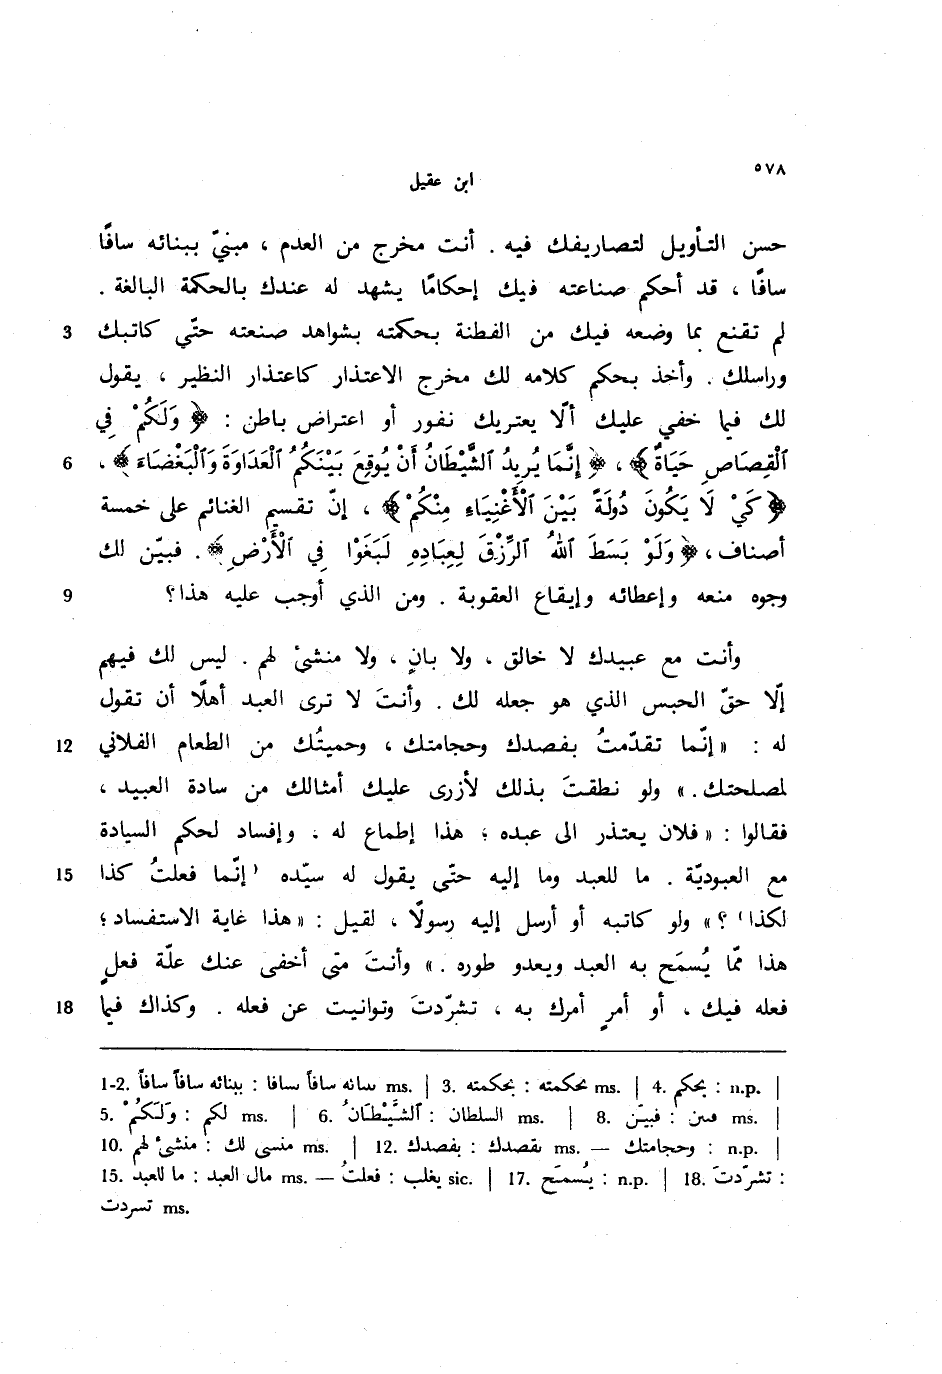 ٥٧٨
ابن عقيل
حسن التأويل لتصاريفك فيه . أنت مخرج من العدم ، مبنيّ ببنائه سافًا
سافًا ، قد أحكم صناعته فيك إحكامًا يشهد له عندك بالحكمة البالغة .
3 لم تقنع بما وضعه فيك من الفطنة بحكمته بشواهد صنعته حتّى كاتبك
وراسلك . وأخذ بحكم كلامه لك مخرج الاعتذار كاعتذار النظير ، يقول
لك فيما خفي عليك ألّا يعتريك نفور أو اعتراض باطن : ﴿ وَلَكُمْ فِي
6 ٱلْقِصَاصِ حَيَاةٌ ﴾ ، ﴿ إِنَّمَا يُرِيدُ ٱلشَّيْطَانُ أَنْ يُوقِعَ بَيْنَكُمُ ٱلْعَدَاوَةَ وَٱلْبَغْضَاءَ ﴾ ،
﴿ كَيْ لَا يَكُونَ دُولَةً بَيْنَ ٱلْأَغْنِيَاءِ مِنْكُمْ ﴾ ، إنّ تقسيم الغنائم على خمسة
أصناف ، ﴿ وَلَوْ بَسَطَ ٱللهُ ٱلرِّزْقَ لِعِبَادِهِ لَبَغَوْا فِي ٱلْأَرْضِ ﴾ . فبيّن لك
9 وجوه منعه وإعطائه وإيقاع العقوبة . ومن الذي أوجب عليه هذا ؟
وأنت مع عبيدك لا خالق ، ولا بانٍ ، ولا منشئ لهم . ليس لك فيهم
إلّا حقّ الحبس الذي هو جعله لك . وأنتَ لا ترى العبد أهلًا أن تقول
12 له : « إنّما تقدّمتُ بفصدك وحجامتك ، وحميتُك من الطعام الفلاني
لمصلحتك . » ولو نطقتَ بذلك لأزرى عليك أمثالك من سادة العبيد ،
فقالوا : « فلان يعتذر الى عبده ؛ هذا إطماع له . وإفساد لحكم السيادة
15 مع العبوديّة . ما للعبد وما إليه حتّى يقول له سيّده ' إنّما فعلتُ كذا
لكذا ' ؟ » ولو كاتبه أو أرسل إليه رسولًا ، لقيل : « هذا غاية الاستفساد ؛
هذا ممّا يُسمَح به العبد ويعدو طوره . » وأنتَ متى أخفى عنك علّة فعلٍ
18 فعله فيك ، أو أمرٍ أمرك به ، تشرّدتَ وتوانيت عن فعله . وكذاك فيما
1-2. ببنائه سافاً سافاً : سانه سافاً سافا ms. | 3. بحكمته : محكمته ms. | 4. بحكم : n.p. |
5. وَلَكُمْ : لكم ms. | 6. ٱلشَّيْطَانُ : السلطان ms. | 8. فبيّن : فىىں ms. |
10. منشئ لهم : منسى لك ms. | 12. بفصدك : ىقصدك ms. — وحجامتك : n.p. |
15. ما للعبد : مال العبد ms. — فعلتُ : يغلب sic. | 17. يُسمَح : n.p. | 18. تشرّدتَ :
تسردت ms.